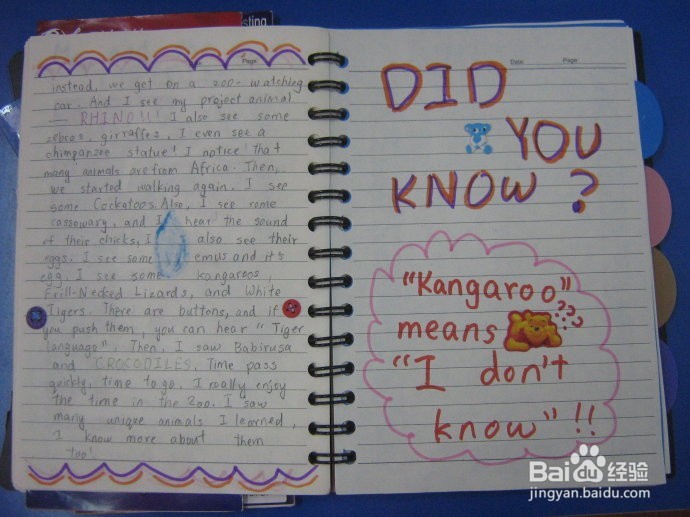 esting
Page:
instead, we get on a zoo-watching
car. And I see my project animal
- RHINO!!! I also see some
zebras, girraffes, I even see a
chimpanzee statue! I notice that
many animals are from Africa. Then,
we started walking again. I see
some Cockatoos. Also, I see some
cassowary, and I hear the sound
of their chicks, I also see their
eggs. I see some emus and it's
egg. I see some kangaroos,
Frill-Necked Lizards, and White
Tigers. There are buttons, and if
you push them, you can hear "Tiger
Language". Then, I saw Babirusa
and CROCODILES. Time pass
quickly, time to go. I really enjoy
the time in the zoo. I saw
many unique animals I learned,
I know more about them
too!
Date: Page:
DID
YOU
KNOW?
"Kangaroo"
means ???
"I don't
know"!!
Baidu经验
jingyan.baidu.com